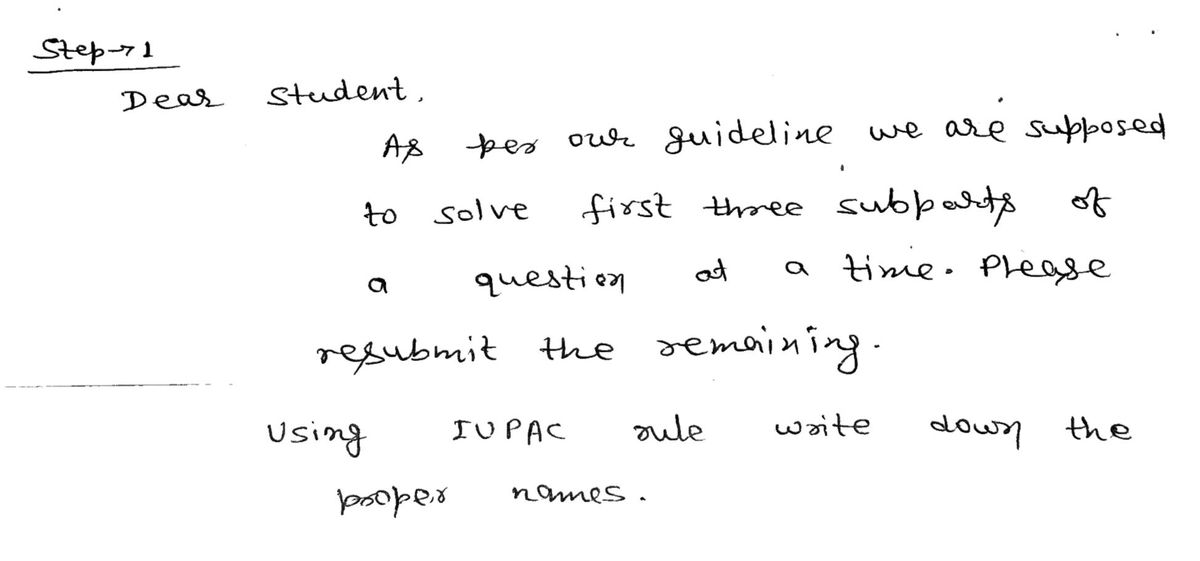 Step→1
Dear student,
As per our guideline we are supposed
to solve first three subparts of
a question at a time. Please
resubmit the remaining.
Using IUPAC rule write down the
proper names.